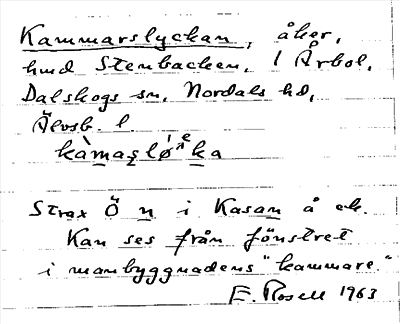 Kammarslyckan, åker,
hmd Stenbacken, 1 Årbol,
Dalskogs sn, Nordals hd,
Älvsb. l.
kàmaşlǿka
Strax Ö n i Kasan å ek.
Kan ses från fönstret
i manbyggnadens "kammare."
E. Rosell 1963